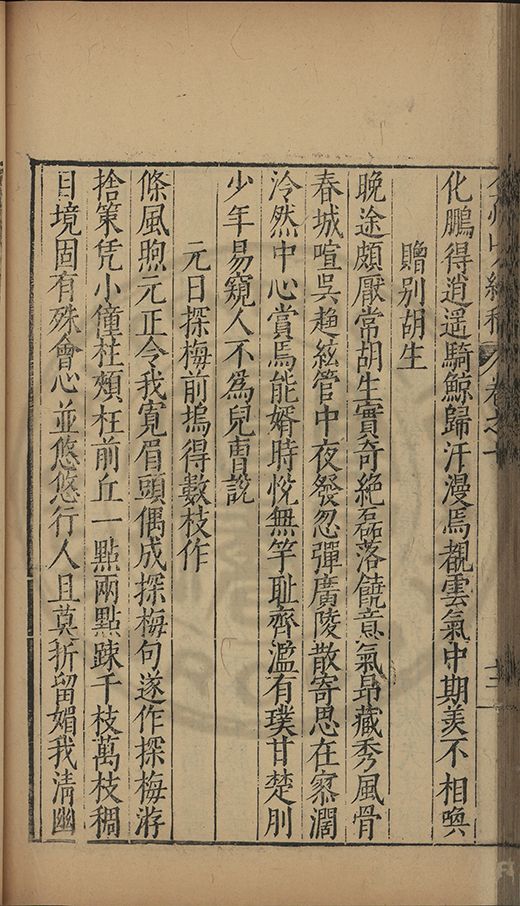 卷之十
十二
化鵬得逍遥騎鯨歸汗漫焉覩雲氣中期羨不相喚
贈别胡生
晚途頗厭常胡生實奇絶磊落饒意氣昻藏秀風骨
春城喧吴趨絃管中夜發忽彈廣陵散寄思在寥濶
泠然中心賞焉能婿時悅無竽耻齊濫有璞甘楚刖
少年易窺人不爲兒曹說
元日探梅前塢得數枝作
條風煦元正令我寛眉頭偶成探梅句遂作探梅游
捨策凭小僮柱頰枉前丘一點兩點踈千枝萬枝稠
目境固有殊會心並悠悠行人且莫折留媚我清幽